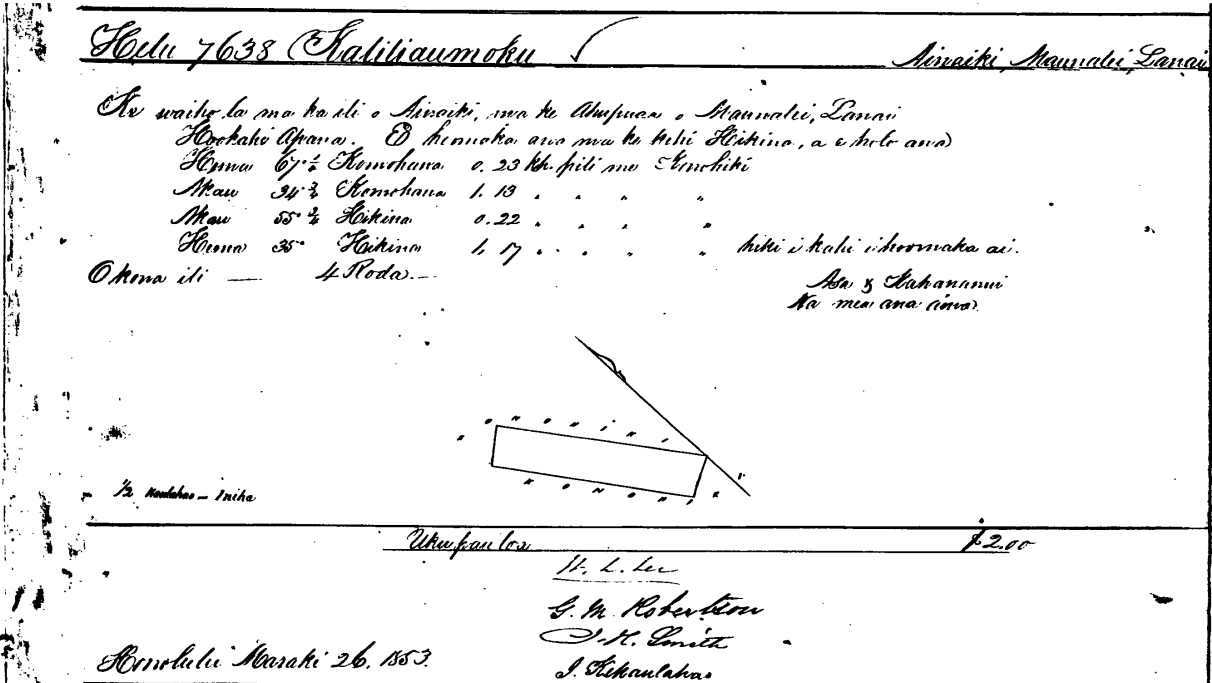 Helu 7638 Kaliliaumoku Ainaiki, Maunalei, Lanai
Ke waiho la ma ka ili o Ainaiki, ma ke Ahupuaa o Maunalei, Lanai
Hookahi Apana. E hoomaka ana ma ke kihi Hikina, a e holo ana
Hema 67 ½ Komohana 0.23 kh. pili me Konohiki
Akau 34 ¾ Komohana 1.13 " " " "
Akau 55 ¾ Hikina 0.22 " " " "
Hema 35° Hikina 1.17 " " " " hiki i kahi i hoomaka ai.
Okona ili — 4 Roda.—
Asa & Kahananui
Na mea ana aina
K o n o h i k i
K o n o h i k i
½ Kaulahao — Iniha
Uku pau loa $2.00
W. L. Lee
G. M. Robertson
J. H. Smith
J. Kekaulahao
Honolulu Maraki 26. 1853.